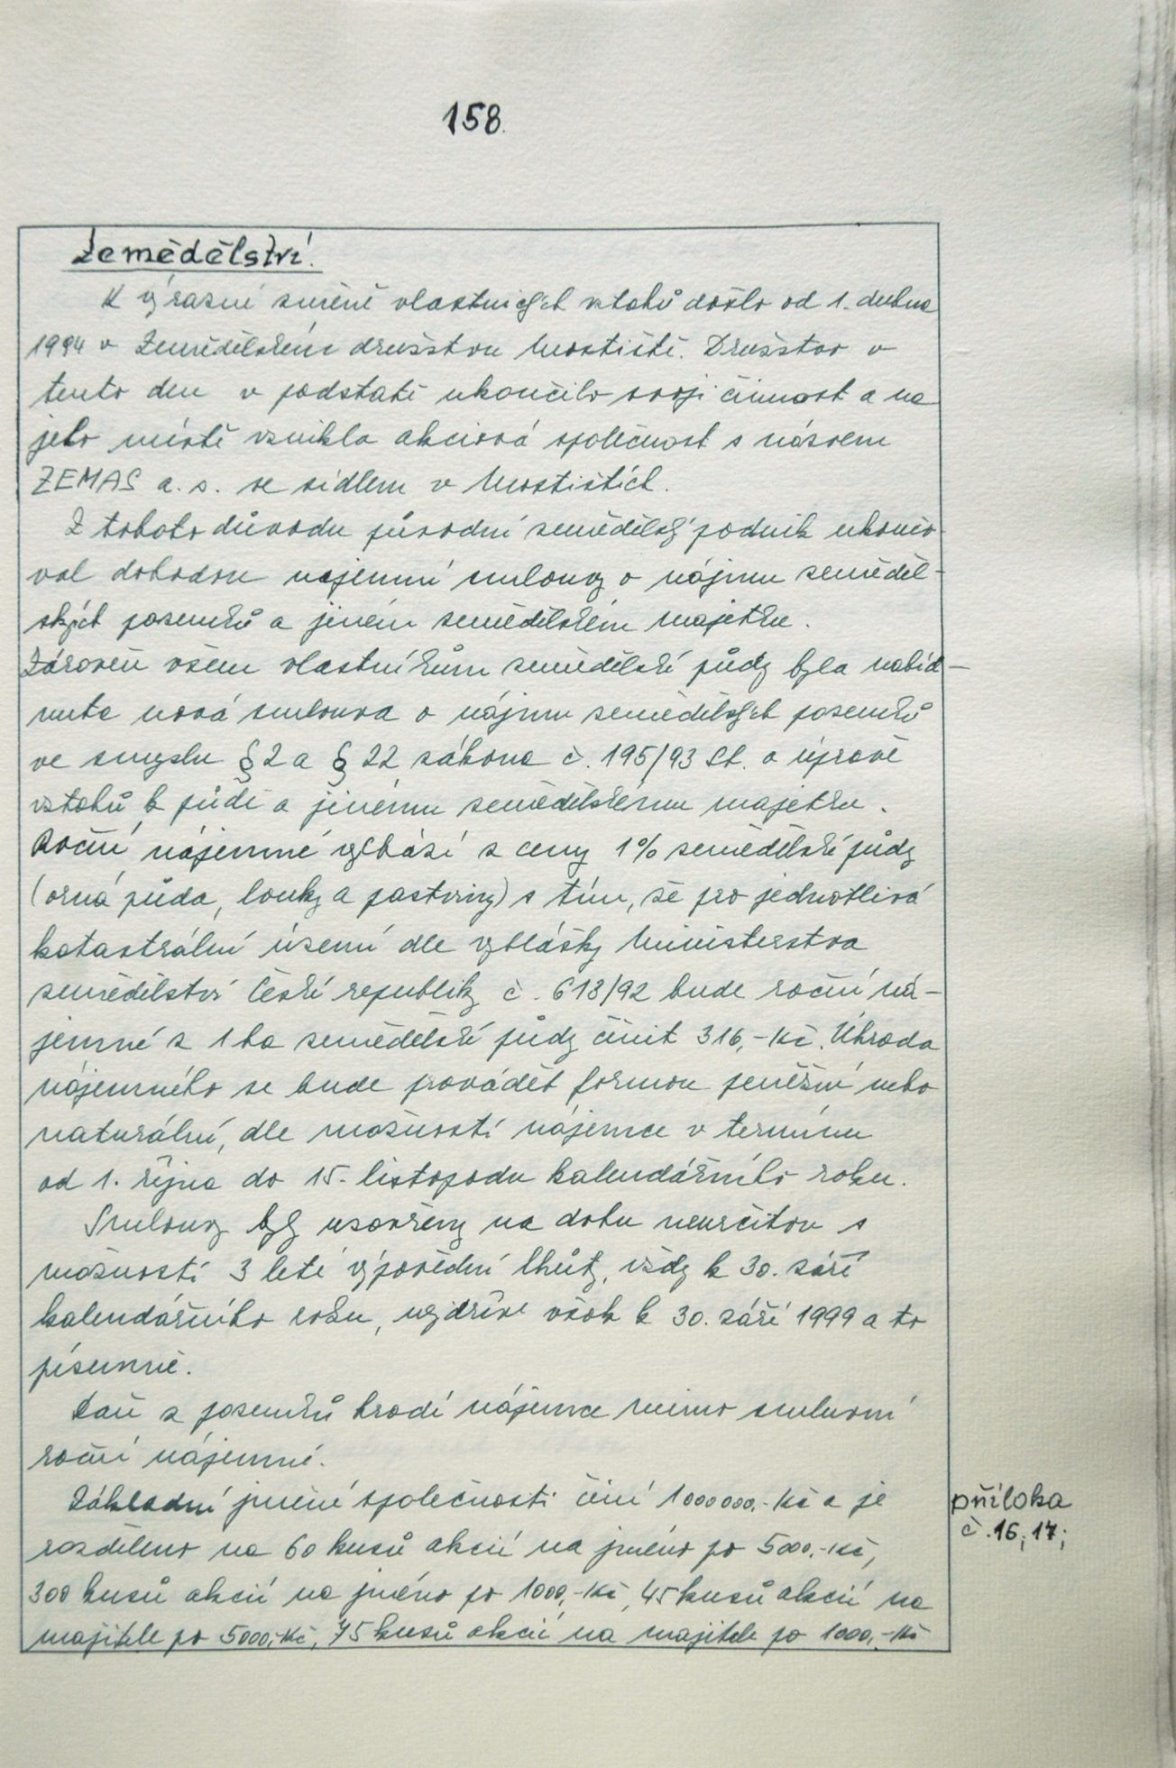 158.
Zemědělství.
K výrazné směně vlastnických vztahů došlo od 1. dubna
1994 v Zemědělském družstvu Mostiště. Družstvo v
tento den v podstatě ukončilo svoji činnost a na
jeho místě vznikla akciová společnost s názvem
ZEMAS a.s. se sídlem v Mostištích.
Z tohoto důvodu původní zemědělský podnik ukončo-
val dohodou nájemní smlouvy o nájmu zeměděl-
ských pozemků a jiném zemědělském majetku.
Zároveň všem vlastníkům zemědělské půdy byla nabíd-
nuta nová smlouva o nájmu zemědělských pozemků
ve smyslu § 2 a § 22 zákona č. 195/93 Sb. o úpravě
vztahů k půdě a jinému zemědělskému majetku.
Roční nájemné vychází z ceny 1% zemědělské půdy
(orná půda, louky a pastviny) s tím, že pro jednotlivá
katastrální území dle vyhlášky Ministerstva
zemědělství České republiky č. 613/92 bude roční ná-
jemné z 1 ha zemědělské půdy činit 316,-Kč. Úhrada
nájemného se bude provádět formou peněžní nebo
naturální, dle možností nájemce v termínu
od 1. října do 15. listopadu kalendářního roku.
Smlouvy byly uzavřeny na dobu neurčitou s
možností 3 leté výpovědní lhůty, vždy k 30. září
kalendářního roku, nejdříve však k 30. září 1999 a to
písemně.
Daň z pozemků hradí nájemce mimo smluvní
roční nájemné.
Základní jmění společnosti činí 1000000,-Kč a je
rozděleno na 60 kusů akcií na jméno po 5000,-Kč,
300 kusů akcií na jméno po 1000,-Kč, 45 kusů akcií na
majitele po 5000,-Kč, 75 kusů akcií na majitele po 1000,-Kč
příloha
č. 16, 17;